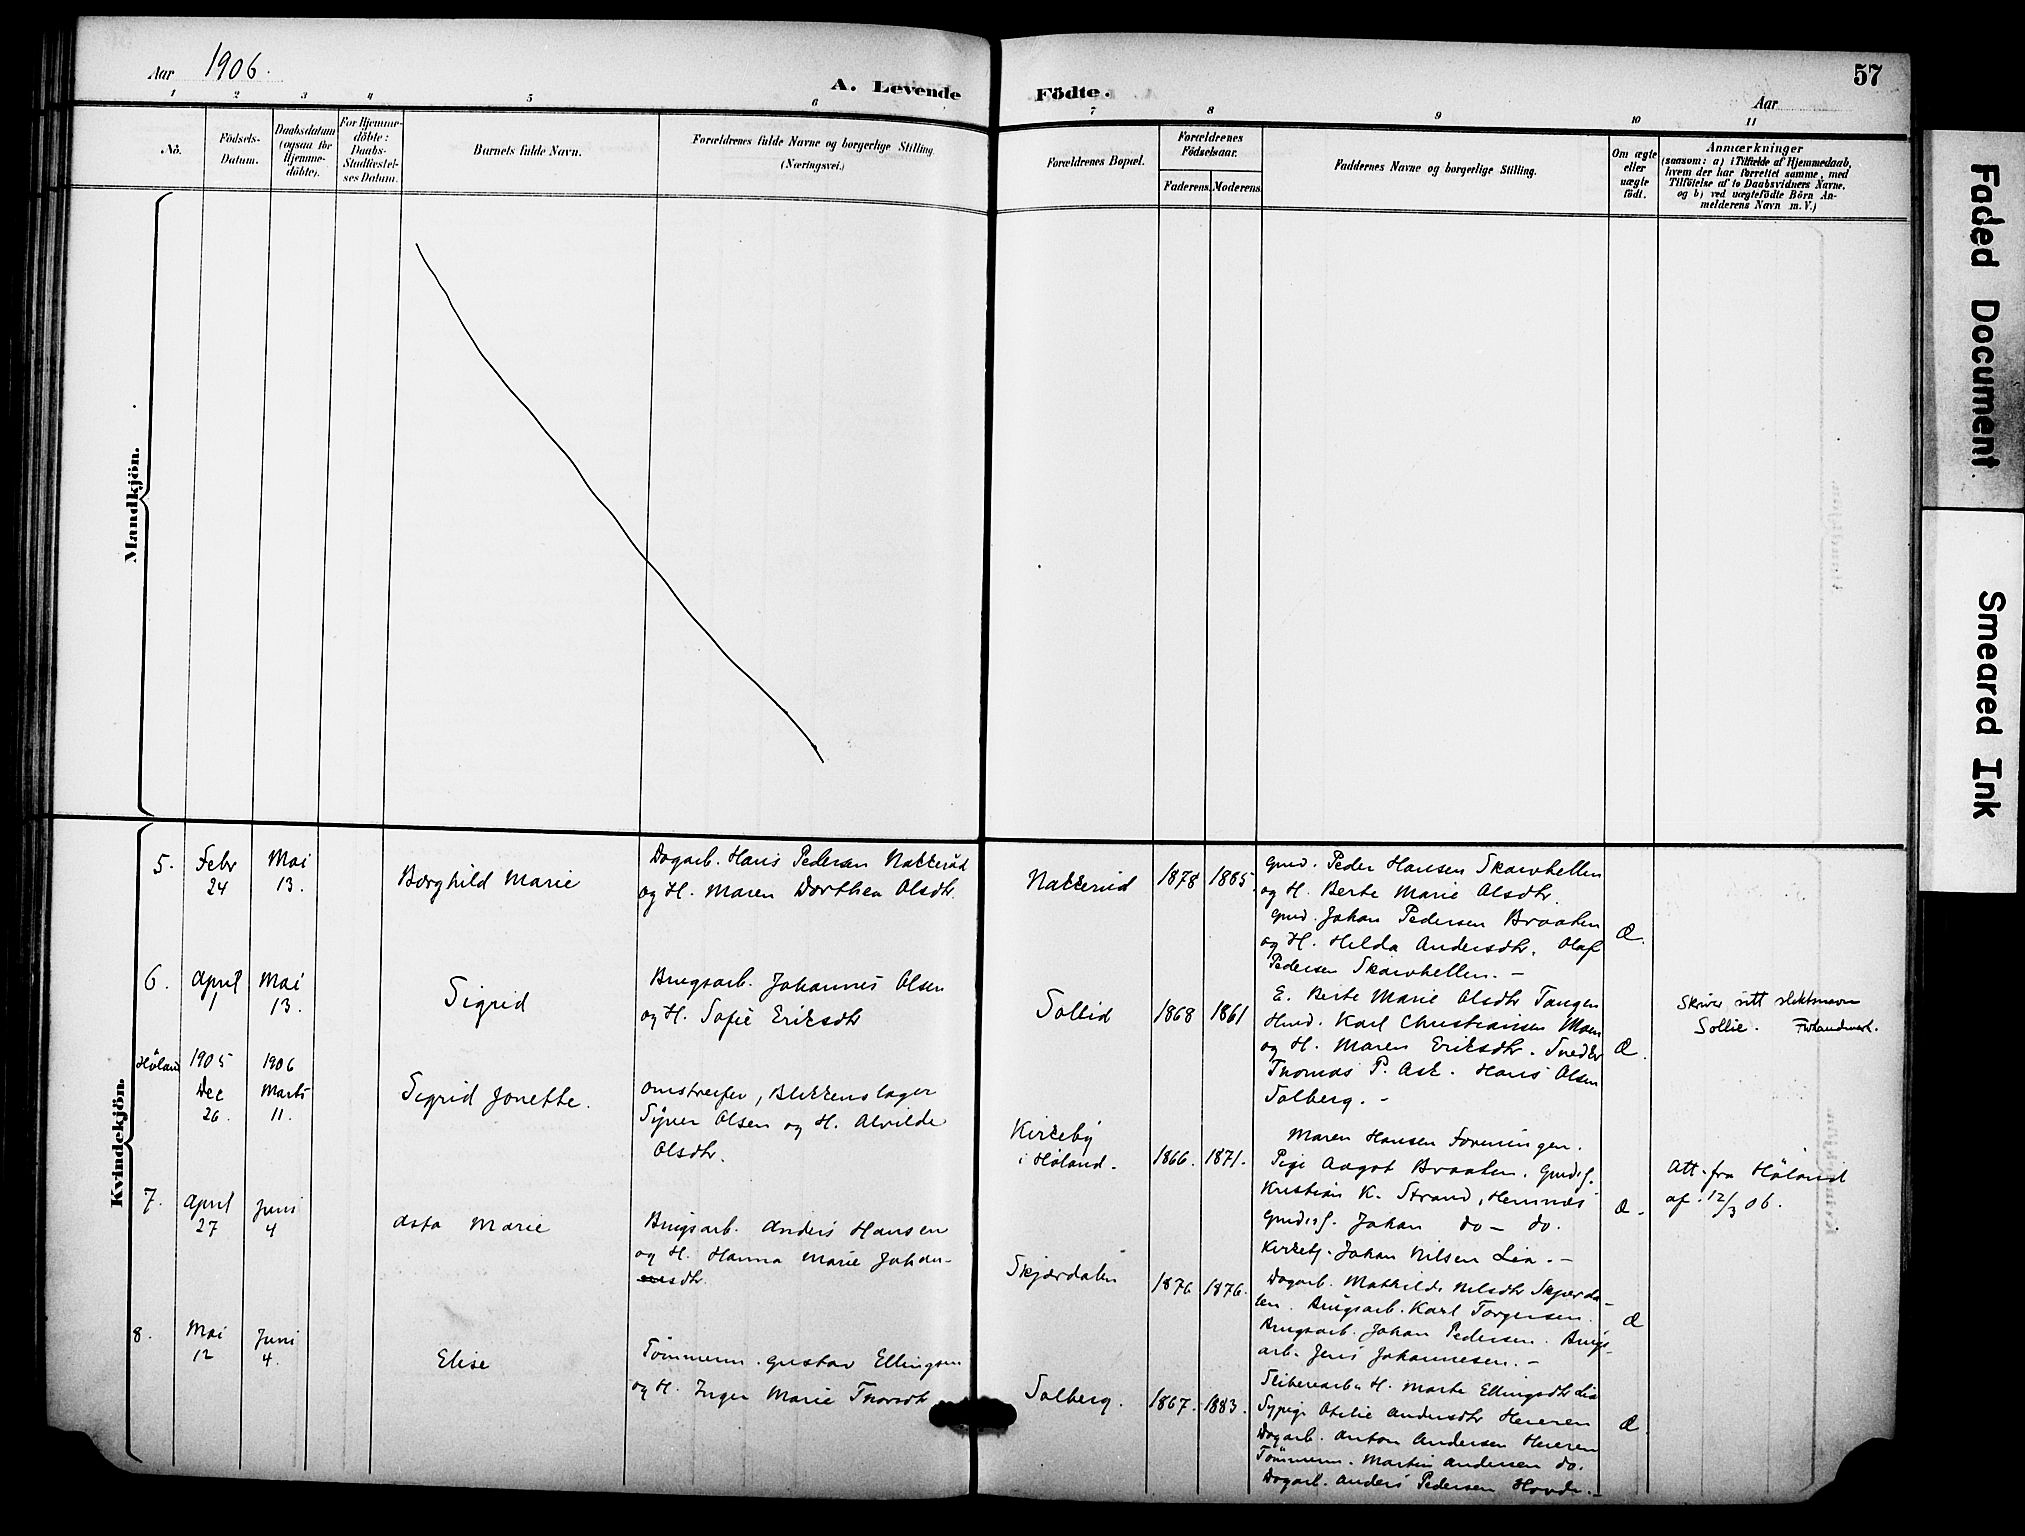 Aar 1906.
A. Levende Födte.
57
Aar
1 2 3 4 5 6 7 8 9 10 11
No.
Födsels-
Datum.
Daabsdatum
(ogsaa for
Hjemme-
döbte).
For Hjemme-
döbte:
Daabs-
Stadfæstel-
ses Datum.
Barnets fulde Navn.
Forældrenes fulde Navne og borgerlige Stilling
(Næringsvei.)
Forældrenes Bopæl.
Forældrenes
Födselsaar.
Faderens. Moderens.
Faddernes Navne og borgerlige Stilling.
Om ægte
eller
uægte
födt.
Anmærkninger
(saasom: a) i Tilfælde af Hjemmedaab,
hvem der har forrettet samme, med
Tilföielse af to Daabsvidners Navne,
og b) ved uægtefödte Börn An-
melderens Navn m. V.)
Mandkjön.
Kvindekjön.
5.
Febr
24
Mai
13.
Borghild Marie
Dagarb. Hans Pedersen Nakkerud
og H. Maren Dorthea Olsdtr.
Nakkerud
1878
1885
Gmd. Peder Hansen Skarvhellen
og H. Berte Marie Olsdtr.
Gmd. Johan Pedersen Braaten
og H. Hilda Andersdtr. Olaf
Pedersen Skarvhellen. –
Æ.
6.
April
1
Mai
13.
Sigrid
Brugsarb. Johannes Olsen
og H. Sofie Eriksdtr
Sollid
1868
1861
E. Berte Marie Olsdtr Tangen
Hmd. Karl Christiansen Moen
og H. Maren Eriksdtr. Snedker
Thomas P. Ask. Hans Olsen
Solberg. –
Æ.
Skriver sitt slektsnavn
Sollie.
Höland
1905
Dec
26.
1906
Marts
11.
Sigrid Jonette.
Omstreifer, Blikkenslager
Syver Olsen og H. Alvilde
Olsdtr.
Kirkeby
i Höland.
1866.
1871.
Maren Hansen Foreningen.
Pige Aagot Braaten. Gmds f.
Kristian K. Strand, Hemnæs
Gmds f. Johan do – do.
Kirketj. Johan Nilsen Lia. –
Æ.
Att. fra Höland
af 12/3 06.
7.
April
27
Juni
4
Asta Marie
Brugsarb. Anders Hansen
og H. Hanna Marie Johan-
sdtr.
Skjærdalen
1876
1876.
Dagarb. Mathilde Nilsdtr Skjærda-
len. Brugsarb. Karl Torgersen.
Brugsarb. Johan Pedersen. Brugs-
arb. Jens Johannesen. –
Æ
8.
Mai
12
Juni
4.
Elise
Tömmerm. Gustav Ellingsen
og H. Inger Marie Thorsdtr
Solberg.
1867.
1883.
Sliberiarb. H. Marte Ellingsdtr Lia
Sypige Otelie Andersdtr Hereren
Dagarb. Anton Andersen Hereren
Tömmerm. Martin Andersen do.
Dagarb. Anders Pedersen Hovde. –
Æ.
Faded Document
Smeared Ink